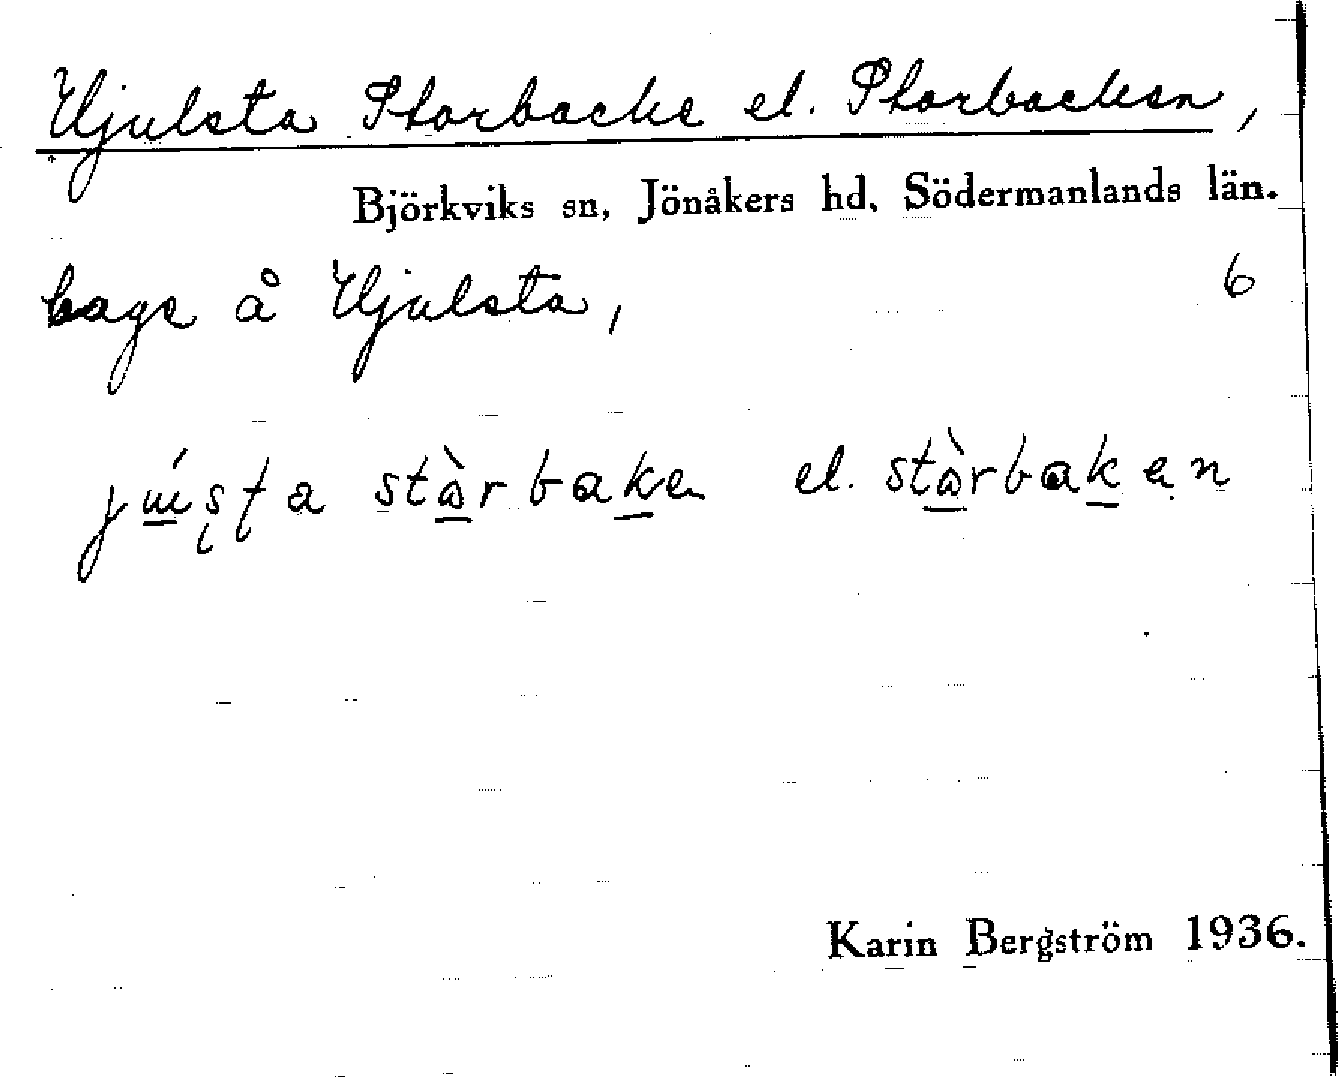 Hjulsta Storbacke el. Storbacken,
Björkviks sn, Jönåkers hd, Södermanlands län.
hage å Hjulsta, 6
el.
Karin Bergström 1936.